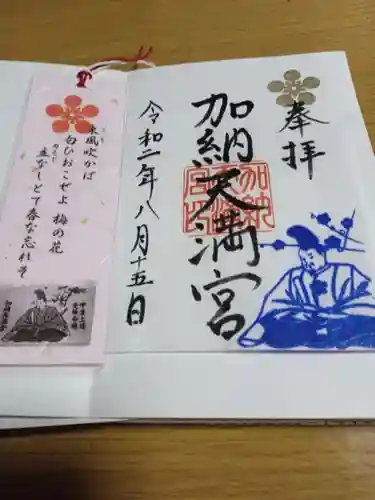 奉拝
加納天満宮
加納天満宮印
令和二年八月十五日
東風吹かば
匂ひおこせよ 梅の花
主なしとて春な忘れそ